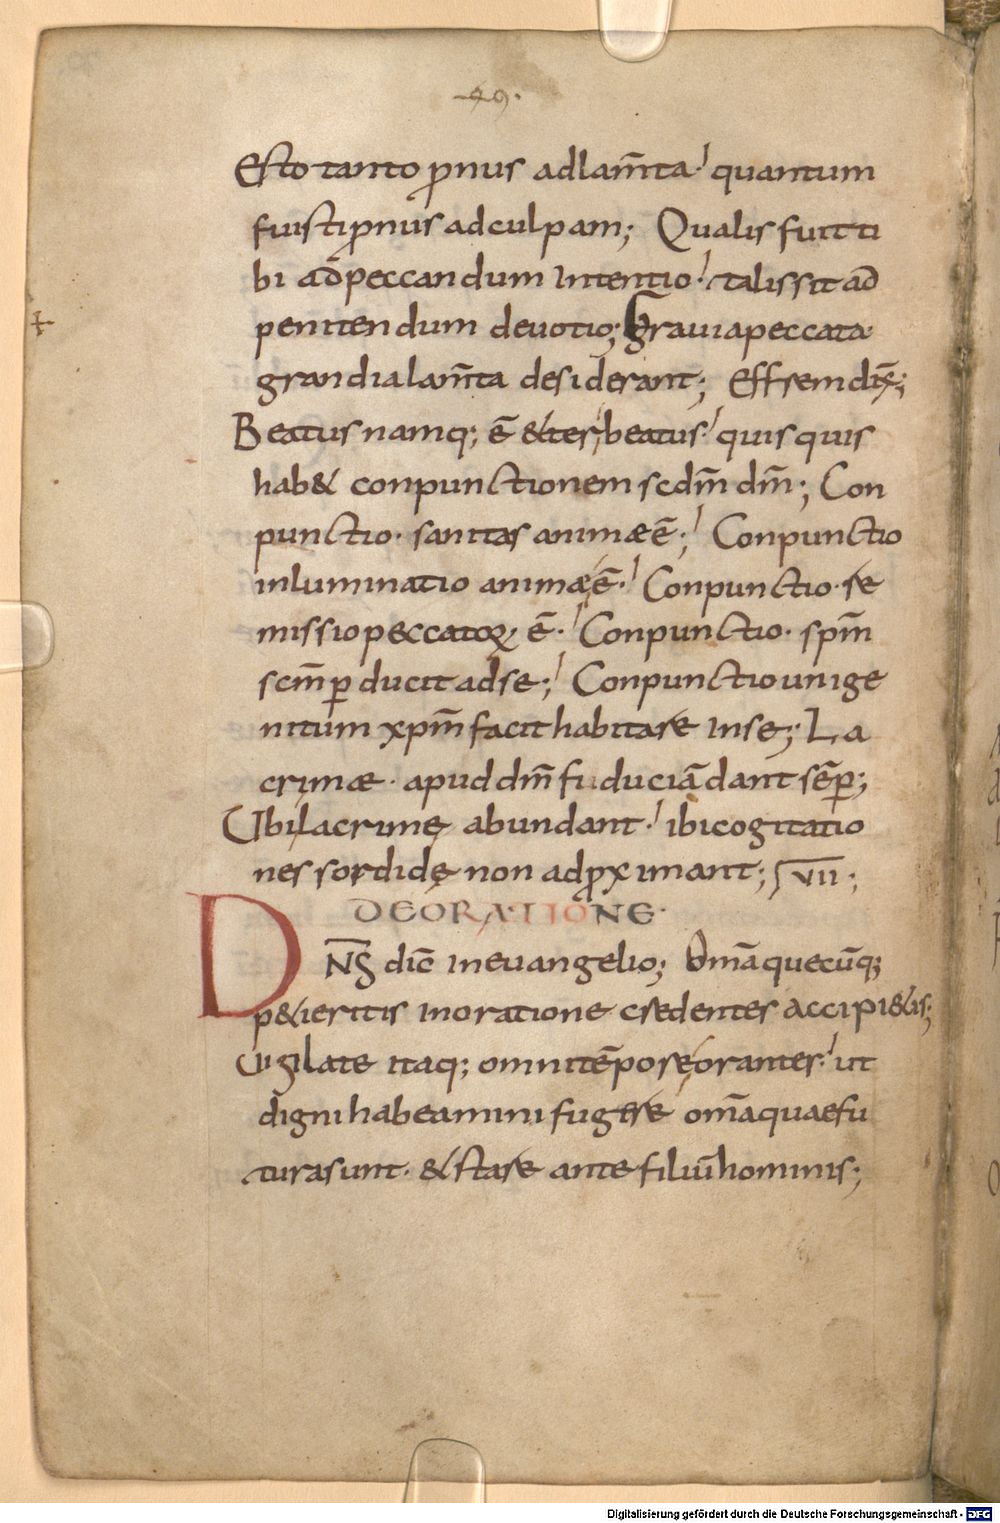 49.
Esto tanto pnus ad lam̄ta· quantum
fuisti pnus ad culpam; Qualis fuit ti
bi ad peccandum intentio· talis sit ad
penitendum deuotio; Grauia peccata
grandia lam̄ta desiderant; Effrem dix̄;
Beatus namq; ē & ter beatus· quisquis
hab& conpunctionem scdm̄ dm̄; Con
punctio· sanitas animæ ē; Conpunctio
inluminatio animæ ē· Conpunctio· re
missio peccatoꝝ ē· Conpunctio· spm̄
scm̄ ꝑducit ad se; Conpunctio unige
nitum xpm̄ facit habitare in se; La
crimæ· apud dm̄ fiduciā dant sēꝑ;
Ubi lacrimę abundant· ibi cogitatio
nes sordidę non adꝓximant; VII·
DE ORATIONE·
DN̄S dic̄ in euangelio; Om̄a quecūq;
p&ieritis in oratione credentes accipi&is;
Uigilate itaq; omni tēpore orantes· ut
digni habeamini fugere om̄a quae fu
tura sunt· & stare ante filiū hominis;
Digitalisierung gefördert durch die Deutsche Forschungsgemeinschaft - DFG